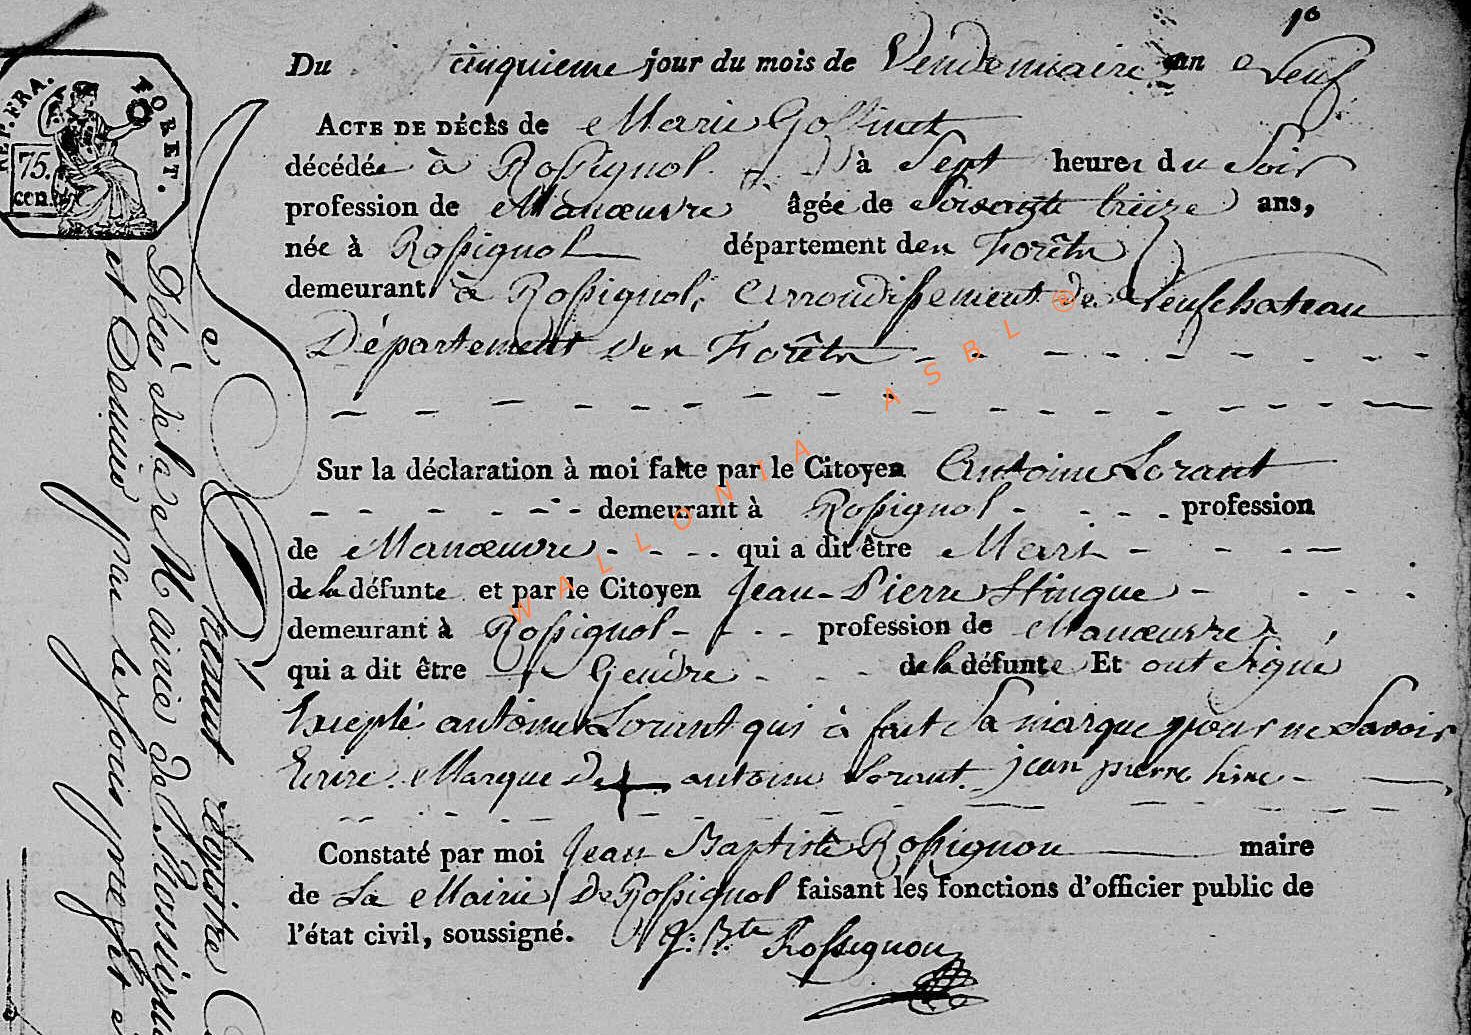 10
Du cinquieme jour du mois de Vendemiaire an Neuf
ACTE DE DÉCÈS de Marie Goffinet
décédée à Rossignol à Sept heures du Soir
profession de Manœuvre âgée de Soisante treize ans,
née à Rossignol département des Forêts
demeurant à Rossignol, Arrondissement de Neufchateau
Département des Forêts
Sur la déclaration à moi faite par le Citoyen Antoine Lorant
demeurant à Rossignol profession
de Manœuvre qui a dit être Mari
de la défunte et par le Citoyen Jean-Pierre Hingue
demeurant à Rossignol profession de Manœuvre,
qui a dit être Gendre de la défunte Et ont Signé
Excepté antoine Lorant qui à fait Sa marque pour ne Savoir
Ecrire. Marque de + antoine Lorant. jean pierre
Constaté par moi Jean Baptiste Rossignon maire
de La Mairie De Rossignol faisant les fonctions d'officier public de
l'état civil, soussigné. J: Bte Rossignon
REP. FRA. FORET.
75.
cen.
registre
Décès de la Mairie de
et Dernier par les jours
WALLONIA ASBL ®